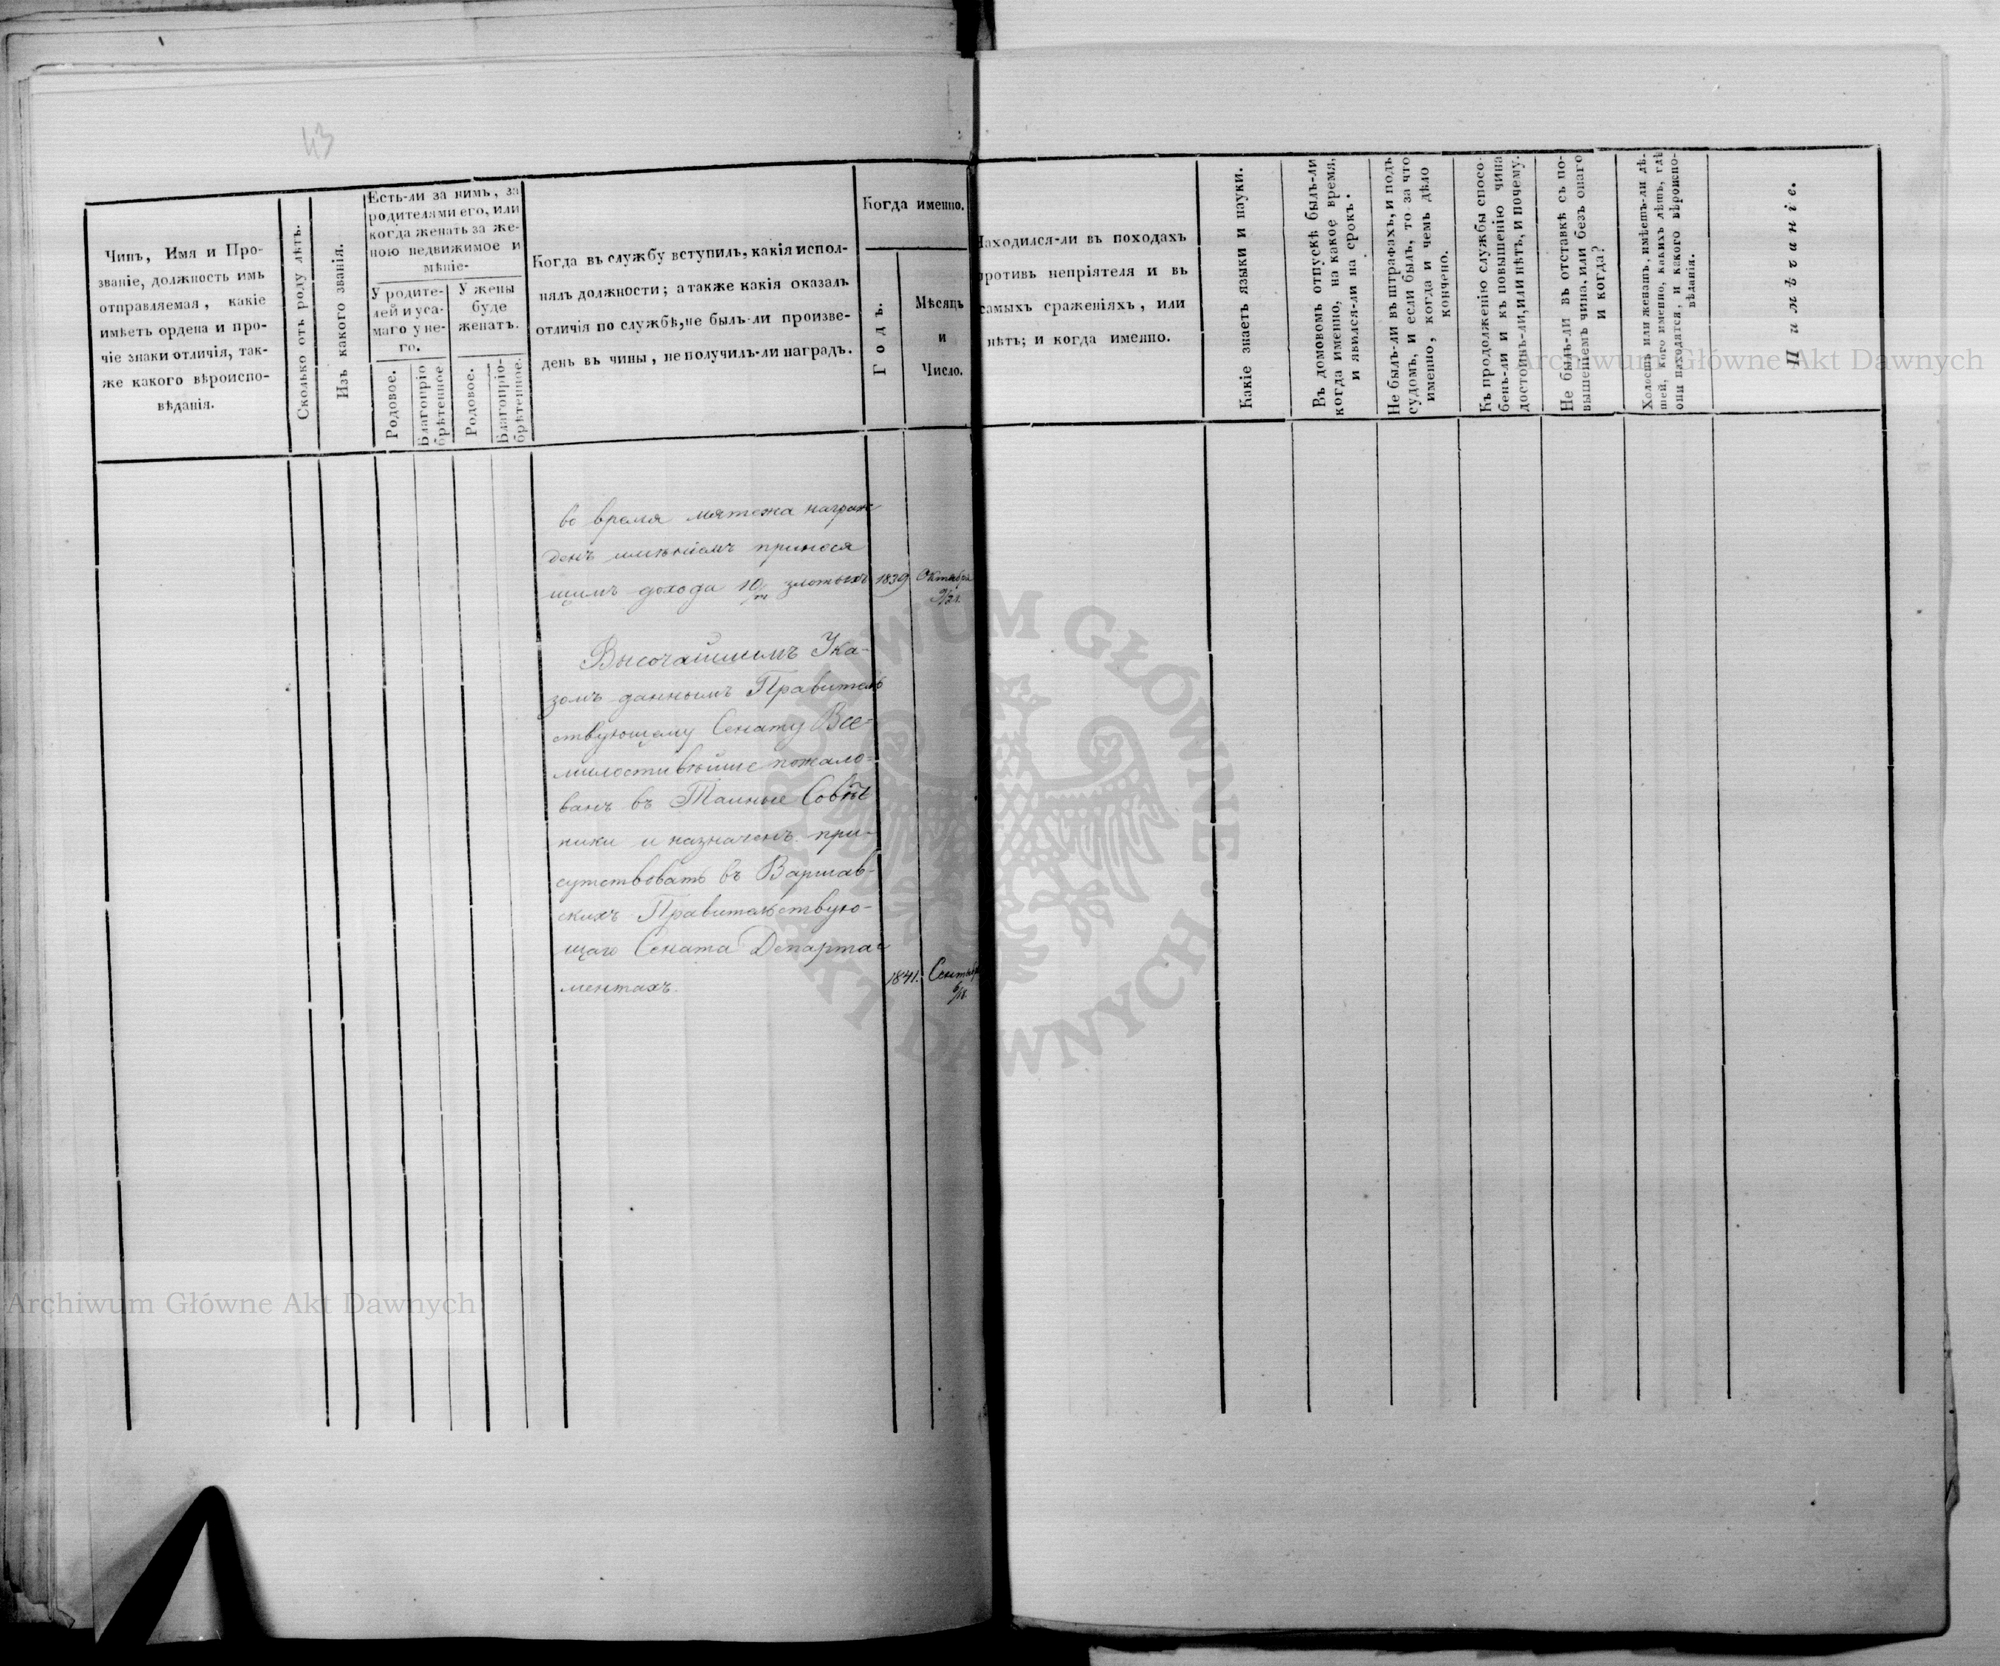 43
Чинъ, Имя и Про-
званіе, должность имъ
отправляемая, какіе
имѣетъ ордена и про-
чіе знаки отличія, так-
же какого вѣроиспо-
вѣданія.
Сколько отъ роду лѣтъ.
Изъ какого званія.
Есть-ли за нимъ, за
родителями его, или
когда женатъ за же-
ною недвижимое и
мѣніе-
У родите-
лей и уса-
маго у не-
го.
У жены
буде
женатъ.
Родовое.
Благопріо
брѣтенное
Родовое.
Благопріо-
брѣтенное.
Когда въ службу вступилъ, какія испол-
нялъ должности; а также какія оказалъ
отличія по службѣ, не былъ-ли произве-
денъ въ чины, не получилъ-ли наградъ.
Когда именно.
Годъ.
Мѣсяцъ
и
Число.
Находился-ли въ походахъ
противъ непріятеля и въ
самыхъ сраженіяхъ, или
нѣтъ; и когда именно.
Какіе знаетъ языки и науки.
Въ домовомъ отпускѣ былъ-ли
когда именно, на какое время,
и явился-ли на срокъ.
Не былъ-ли въ штрафахъ, и подъ
судомъ, и если былъ, то за что
именно, когда и чемъ дѣло
кончено.
Къ продолженію службы спосо-
бенъ-ли и къ повышенію чина
достоинъ-ли, или нѣтъ, и почему.
Не былъ-ли въ отставкѣ съ по-
вышеніемъ чина, или безъ онаго
и когда?
Холостъ или женатъ, имѣетъ-ли дѣ-
тей, кого именно, какихъ лѣтъ, гдѣ
они находятся, и какого вѣроиспо-
вѣданія.
во время мятежа награж
денъ имѣніемъ принося
щимъ дохода 10/m злотыхъ 1839 Октября
9/21.
Высочайшимъ Ука-
зомъ даннымъ Правитель
ствующему Сенату Все-
милостивѣйше пожало-
ванъ въ Тайные Совѣт
ники и назначенъ при-
сутствовать въ Варшав-
скихъ Правительствую-
щаго Сената Департа-
ментахъ. 1841. Сентября
6/18.
Archiwum Główne Akt Dawnych
ARCHIWUM GŁÓWNE AKT DAWNYCH
Archiwum Główne Akt Dawnych